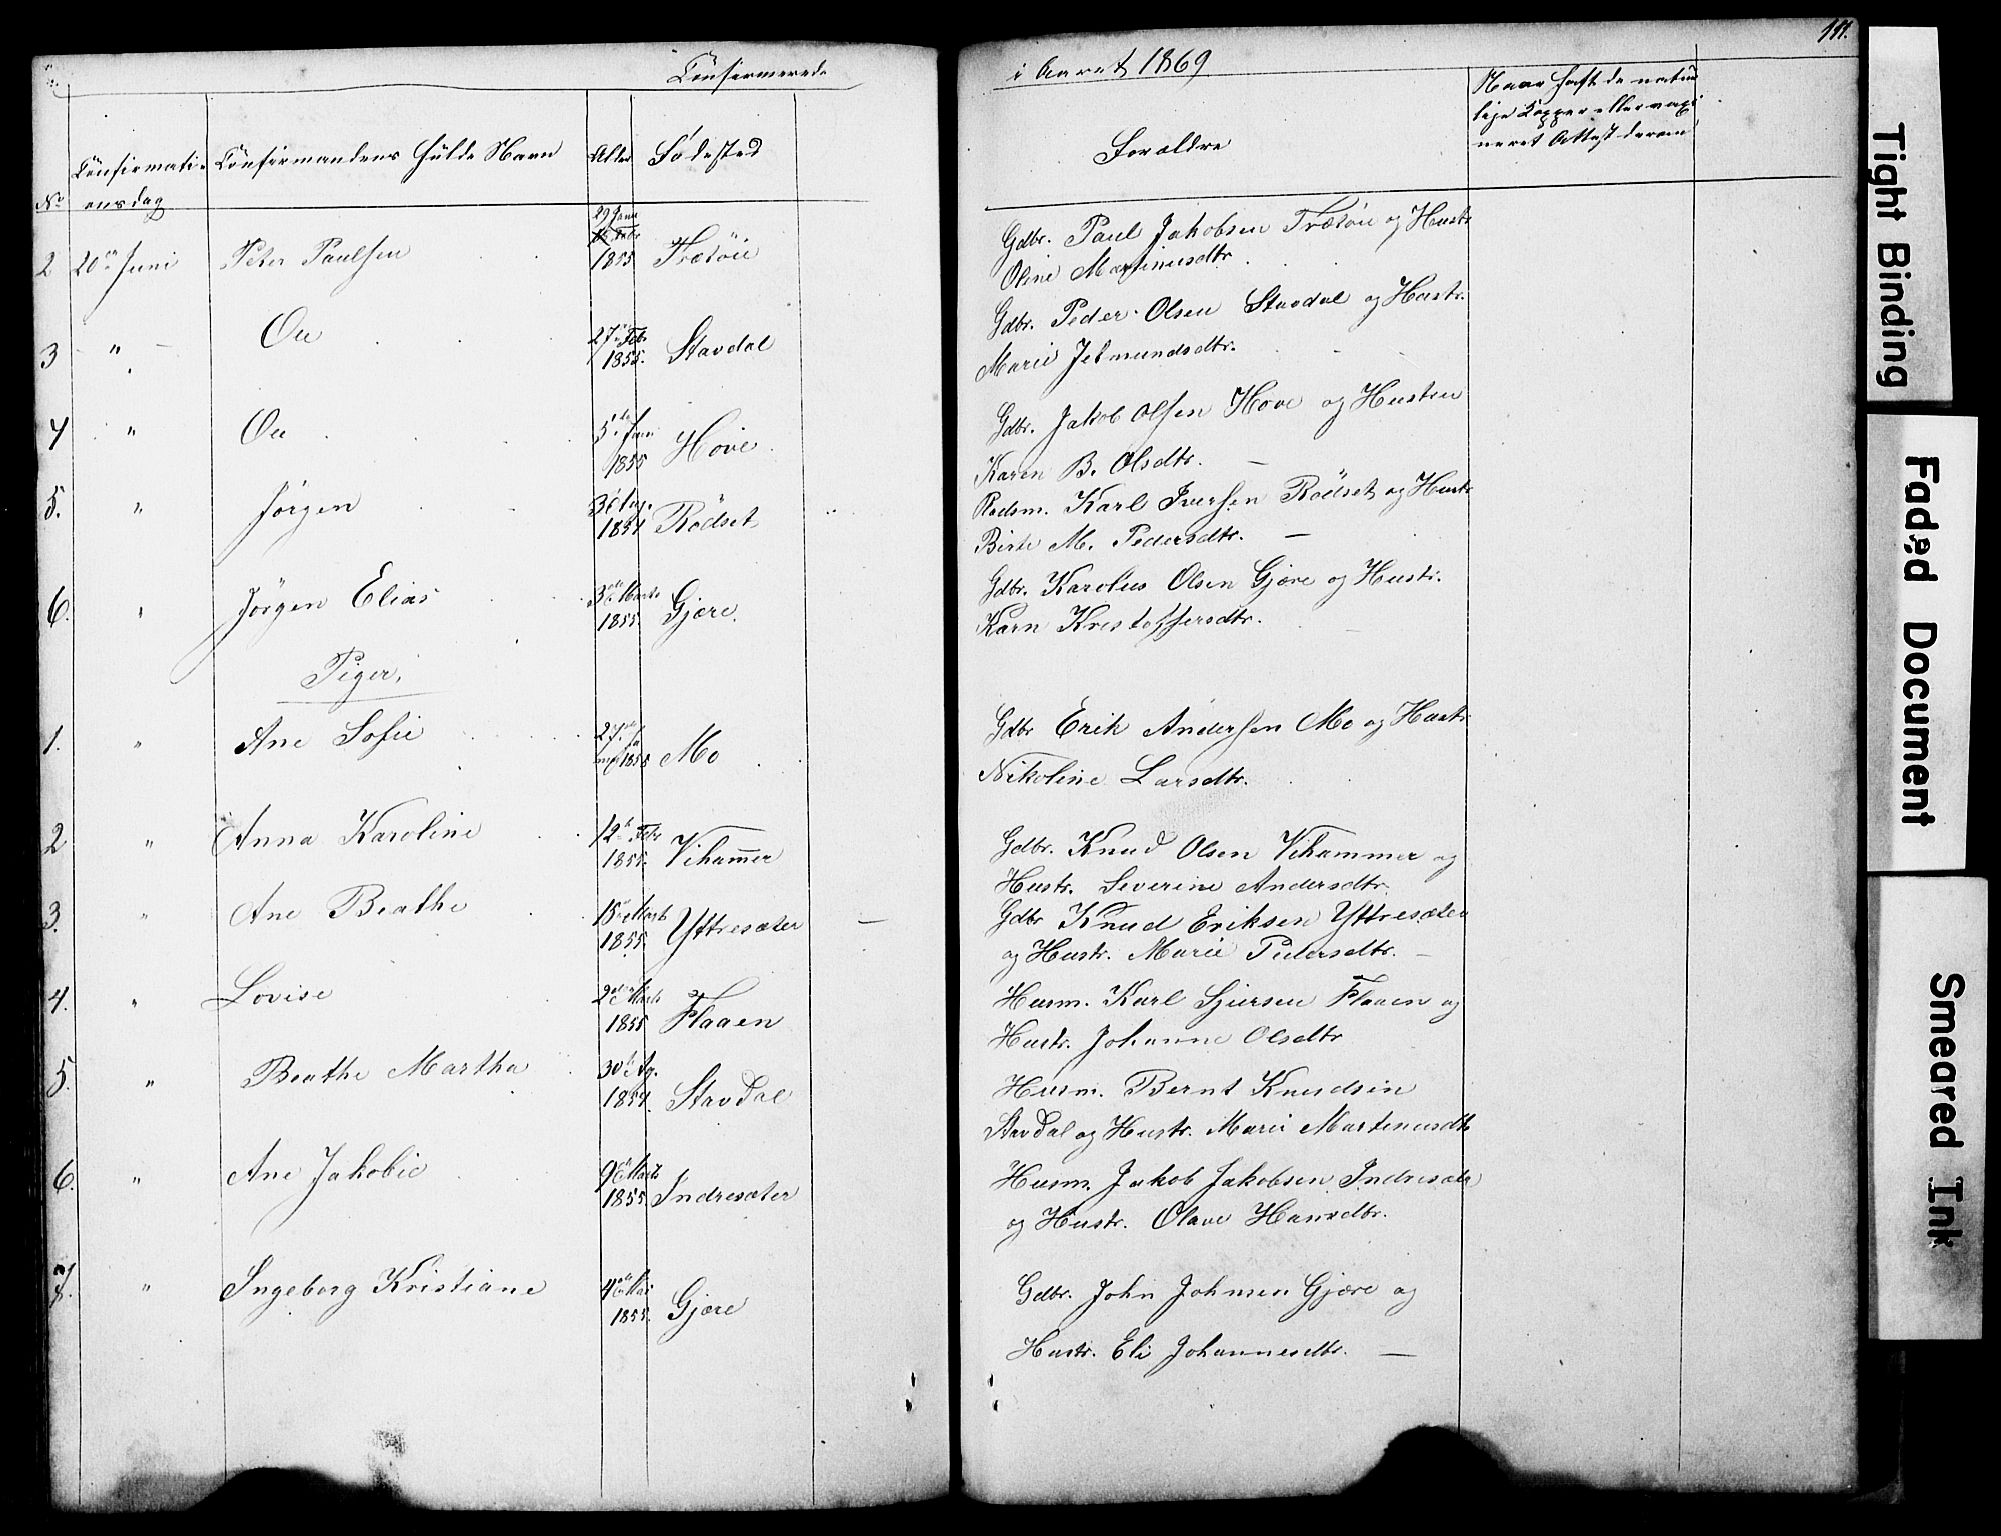 Confirmerede
i Aaret 1869
111.
No
Confirmations dag
Confirmandens fulde Navn
Alder
Födested
Forældre
Naar haft de naturlige Kopper eller vaxineret Attest derom
2 20de Juni Peter Paulsen 29 Janr 1855 Trætöie
Gdbr. Paul Jakobsen Trætöie og Hustr
Oline Martinusdtr.
3 " Ole 27de Febr 1855. Stavdal
Gdbr. Peder Olsen Stavdal og Hustr.
Marie Jetmundsdtr.
4 " Ole 5te Janr 1855 Hove.
Gdbr. Jakob Olsen Hove og Hustru
Karen B. Olsdtr. —
5. " Jörgen 1854 Rödset
Rodsm. Karl Iversen Rödset og Hustr
Birte M. Pedersdtr. —
6. " Jörgen Elias 3de Marts 1855. Gjære.
Gdbr. Karolus Olsen Gjære og Hustr.
Karn Kristoffersdtr. —
Piger.
1. " Ane Sofie 27de 1855 Mo
Gdbr Erik Andersen Mo og Hustr.
Nikoline Larsdtr.
2 " Anna Karoline 12te Febr 1855. Vihammer
Gdbr. Knud Olsen Vihammer og
Hustr. Severine Andersdtr.
3. " Ane Beathe 15de Marts 1855. Yttresæter —
Gdbr Knud Eriksen Yttresæter
og Hustr. Marie Pedersdtr. —
4. " Lovise 2den Marts 1855 Flaaen
Husm. Karl Sjursen Flaaen og
Hustr. Johanne Olsdtr
5. " Beathe Martha 30te Ag. 1854. Stavdal
Husm. Bernt Knudsen
Stavdal og Hustr. Marie Martinusdtr
6. " Ane Jakobie 9de Marts 1855. Indresæter
Husm. Jakob Jakobsen Indresætr
og Hustr. Olave Hansdtr.
7. " Ingeborg Kristiane 4de Mai 1855. Gjære
Gdbr. John Johnsen Gjære og
Hustr. Eli Johannesdtr. —
Tight Binding
Faded Document
Smeared Ink